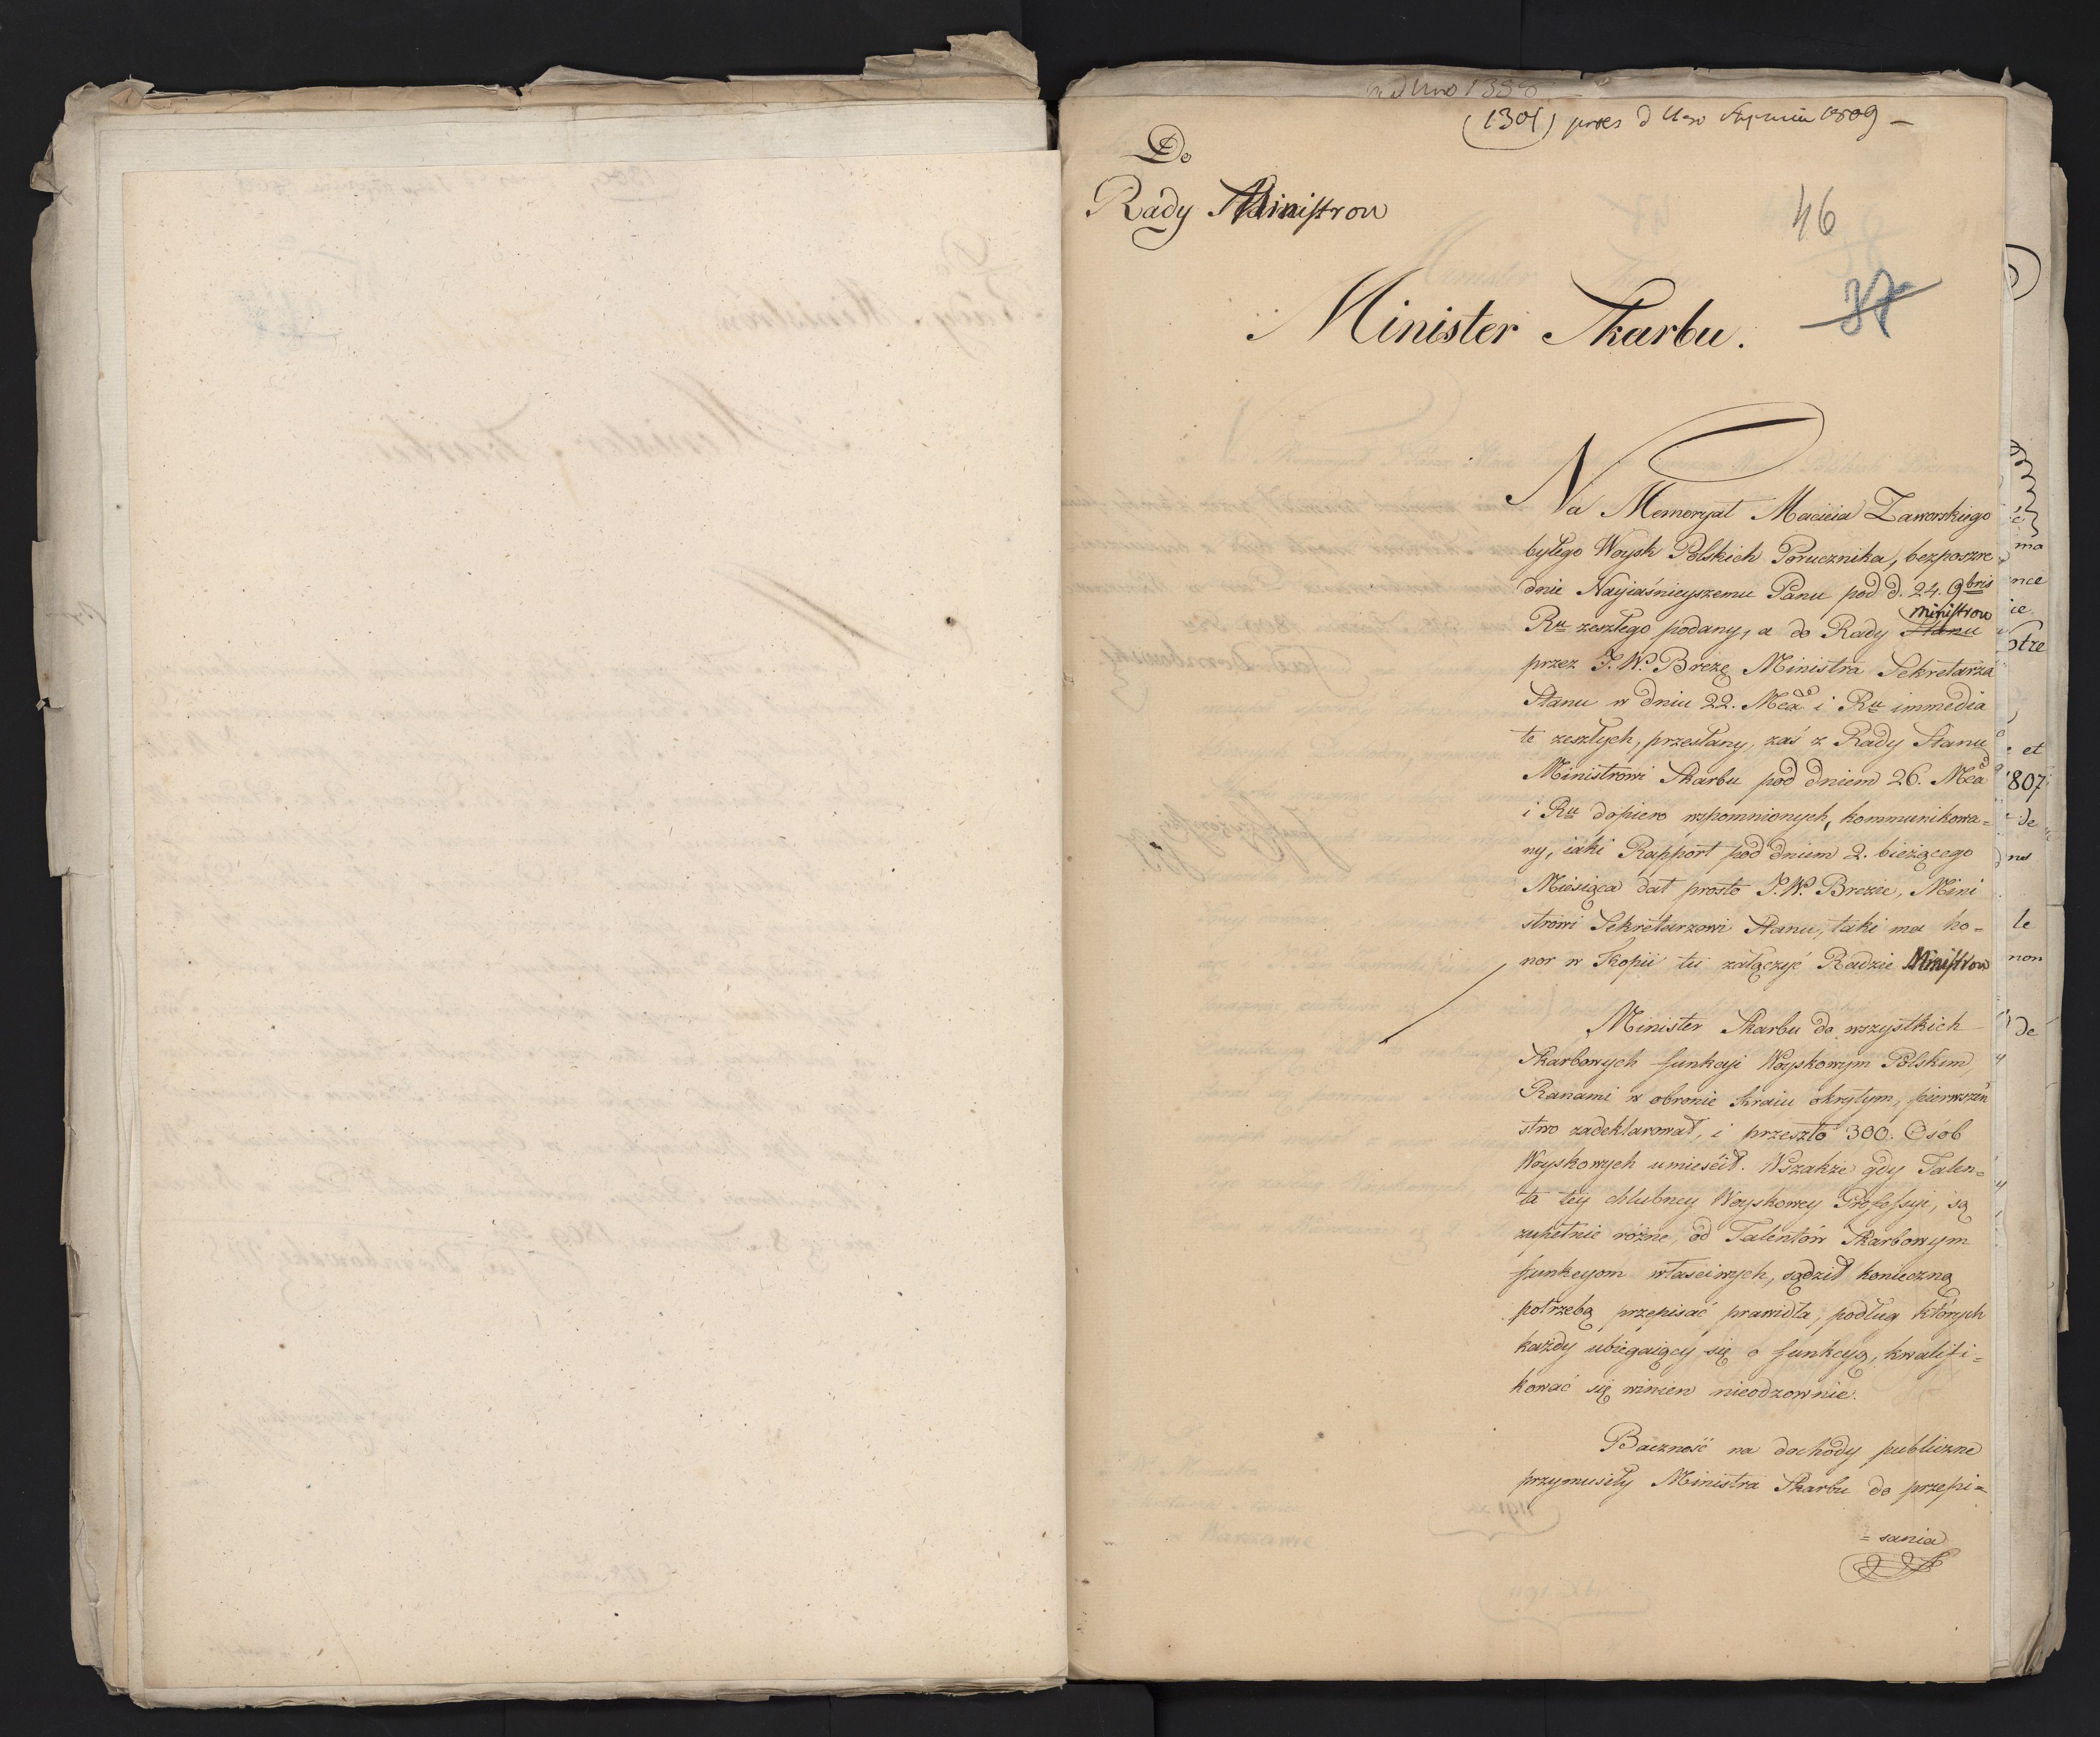 (1301) praes d 11go Stycznia 1809 –
Do
Rady Ministrow
46
37
Minister Skarbu.
Na Memoryał Macieia Zaworskiego
byłego Woysk Polskich Porucznika, bezposzre
dnie Nayiaśnieyszemu Panu pod d. 24. 9bris
Ru zeszłego podany, a do Rady Stanu ministrow
przez J.W. Brezę Ministra Sekretarza
Stanu w dniu 22. Mca i Ru immedia
te zeszłych, przesłany, zaś z Rady Stanu
Ministrowi Skarbu pod dniem 26. Mca
i Ru dopiero wspomnionych, kommunikowa=
ny, iaki Rapport pod dniem 2. bieżącego
Miesiąca dał prosto J.W. Brezie, Mini
strowi Sekretarzowi Stanu, taki ma ho=
nor w Kopii tu załączyć Radzie Ministrow
Minister Skarbu do wszystkich
Skarbowych funkcyi Woyskowym Polskim,
Ranami w obronie Kraiu okrytym, pierwszeń
stwo zadeklarował, i przeszło 300. Osób
Woyskowych umieścił. Wszakże gdy Talen=
ta tey chlubney Woyskowey Professyi, są
zupełnie różne, od Talentów Skarbowym
funkcyom właściwych, sądził konieczną
potrzebą przepisać prawidła, podług których
każdy ubiegaiący się o funkcyą, kwalifi=
kować się winien nieodzownie.
Baczność na dochody publiczne
przymusiły Ministra Skarbu do przepi=
=sania